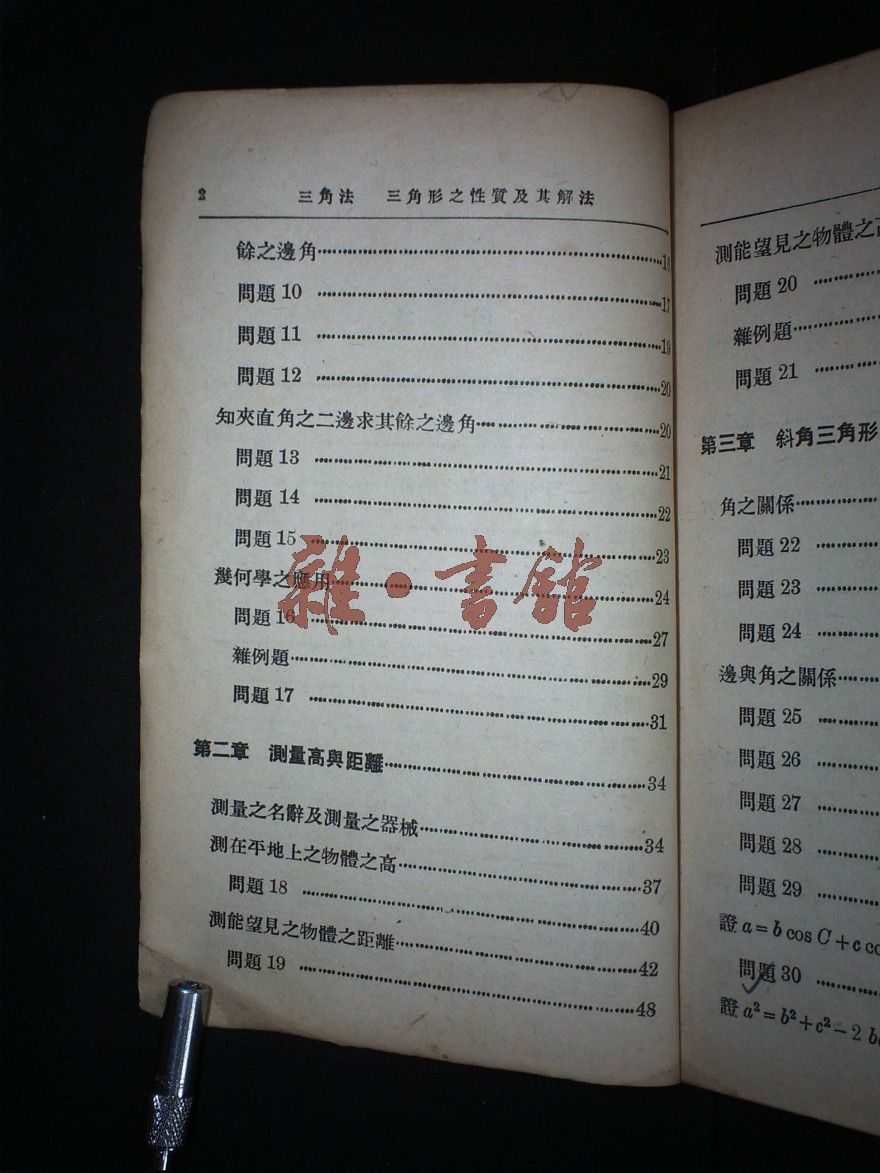 2 三角法 三角形之性質及其解法
餘之邊角
問題10 17
問題11 19
問題12 20
知夾直角之二邊求其餘之邊角 20
問題13 21
問題14 22
問題15 23
幾何學之應用 24
問題16 27
雜例題 29
問題17 31
第二章 測量高與距離 34
測量之名辭及測量之器械 34
測在平地上之物體之高 37
問題18 40
測能望見之物體之距離 42
問題19 48
雜·書館
測能望見之物體之高
問題20
雜例題
問題21
第三章 斜角三角形
角之關係
問題22
問題23
問題24
邊與角之關係
問題25
問題26
問題27
問題28
問題29
證 a = b cos C + c co
問題30
證 a² = b² + c² − 2 b